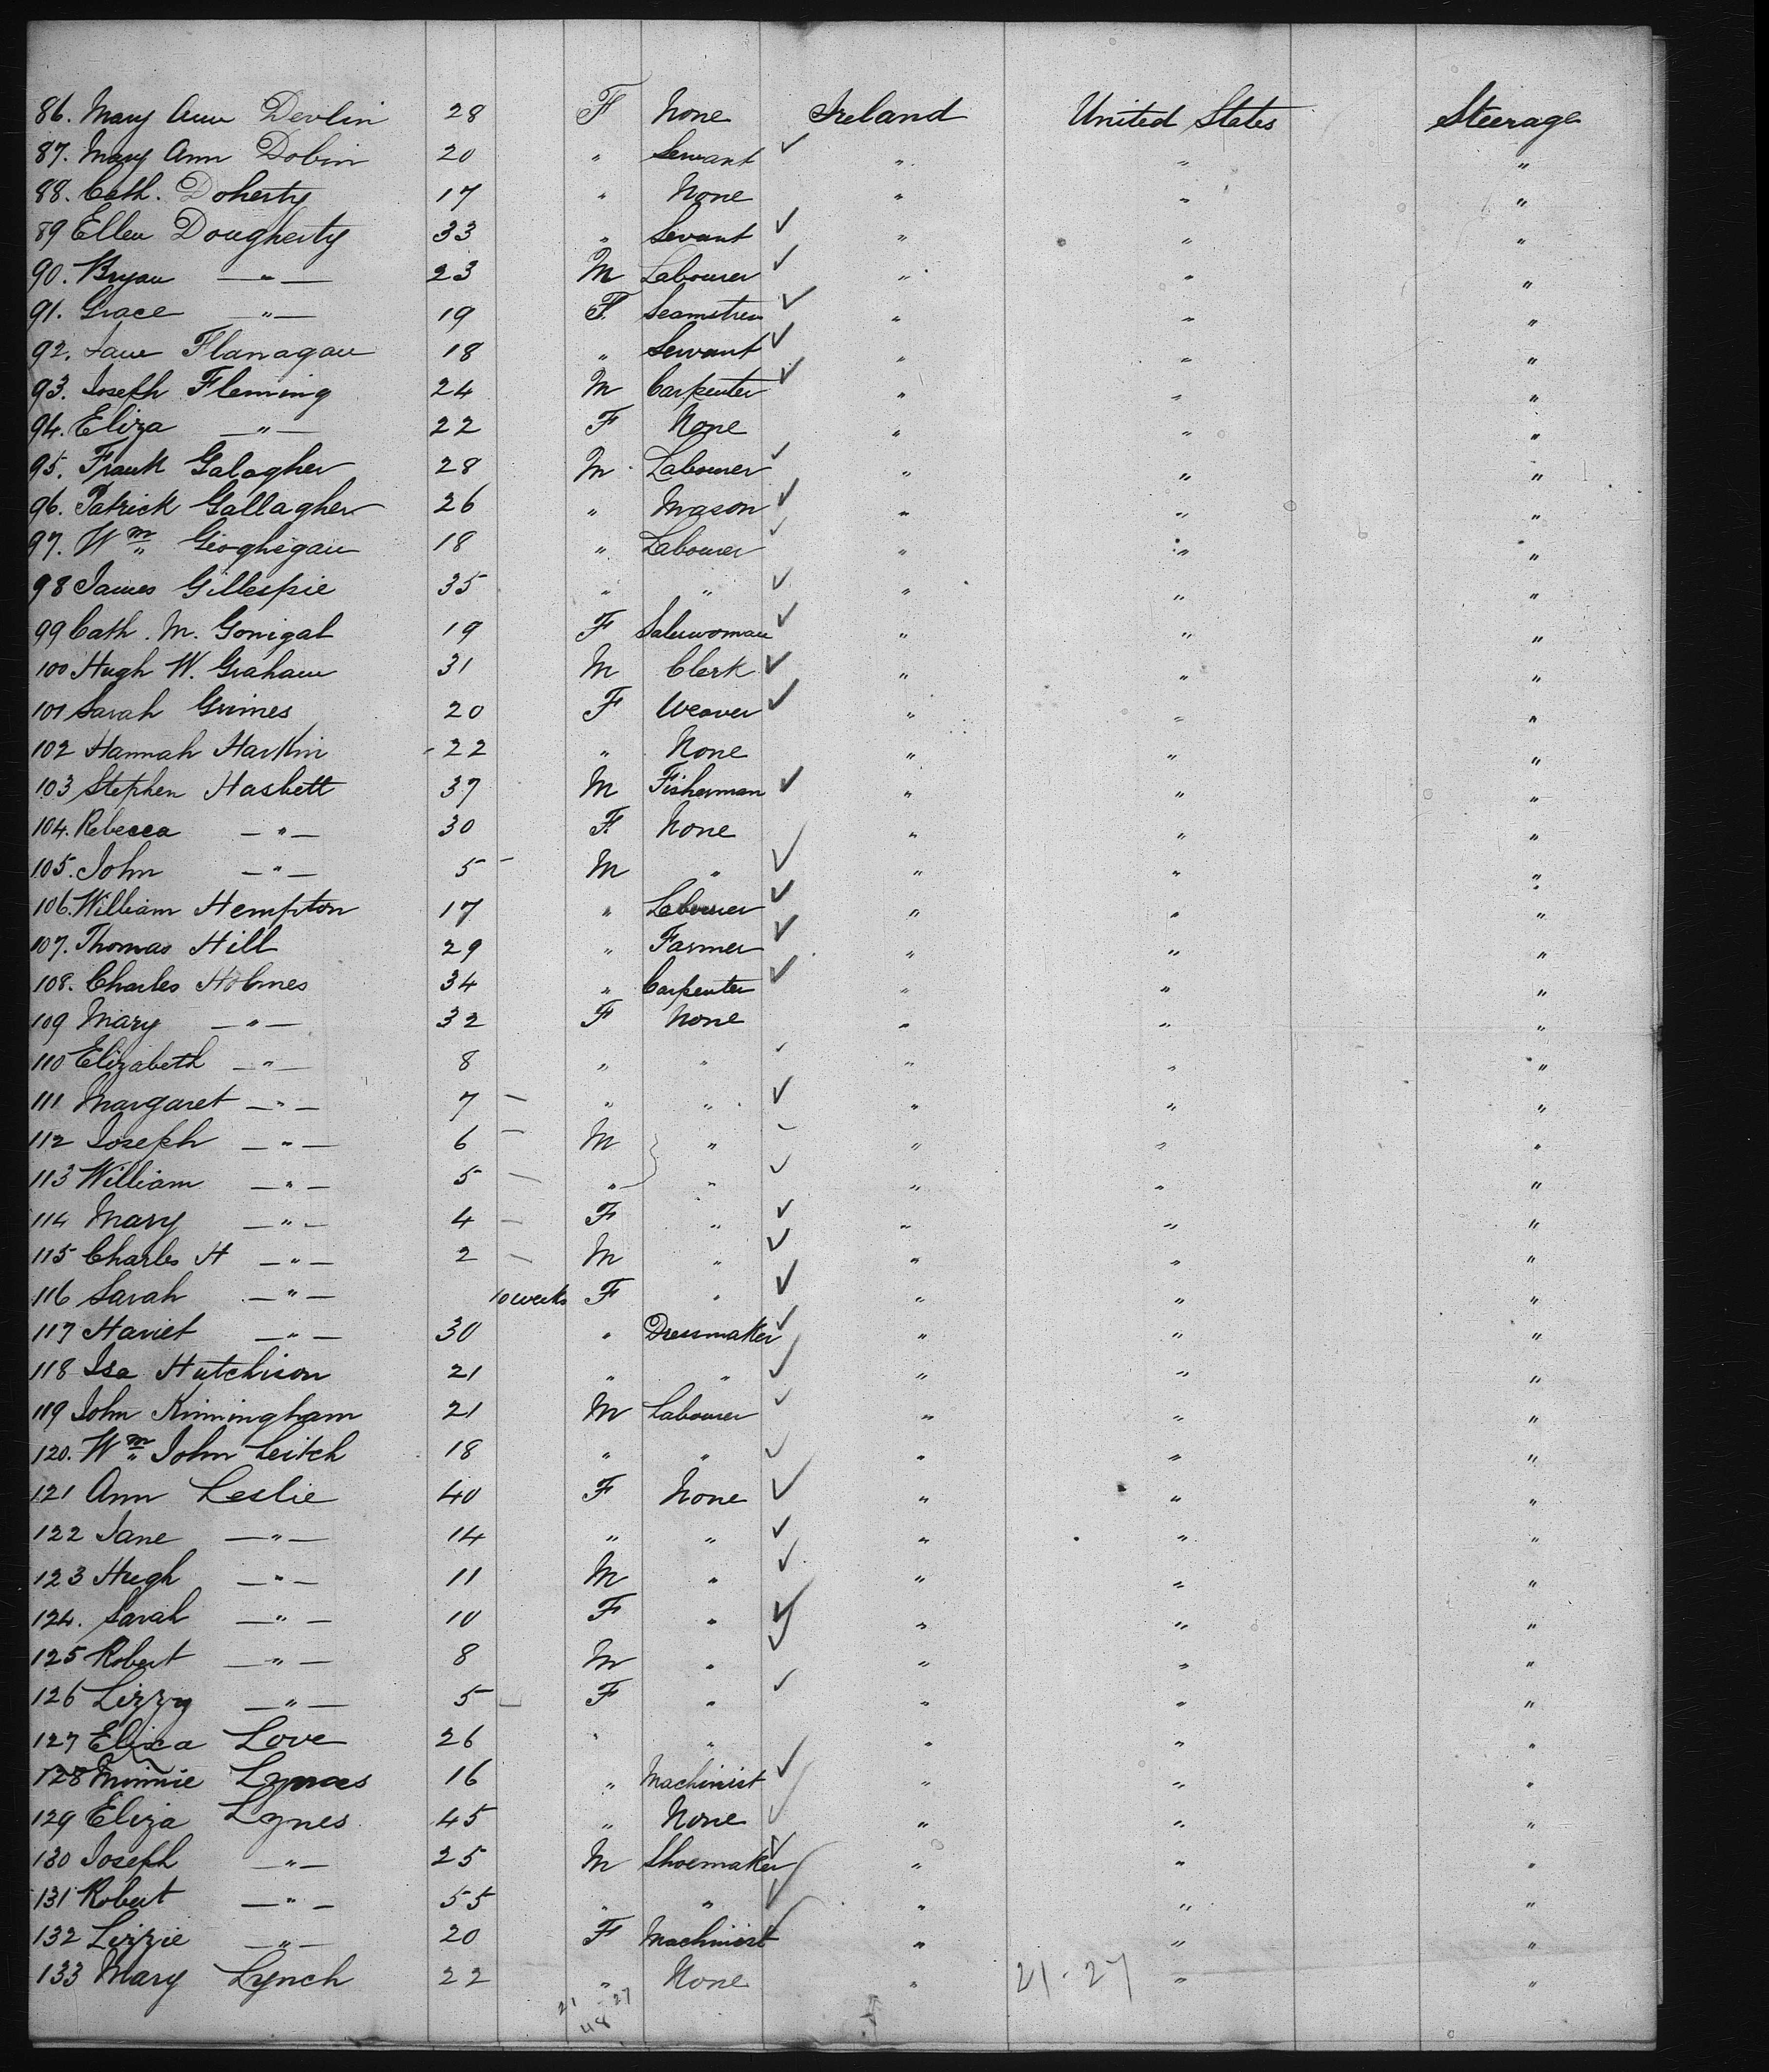 86. Mary Ann Devlin 28 F None Ireland United States Steerage
87. Mary Ann Dobin 20 " Servant " " "
88. Cath. Doherty 17 " None " " "
89 Ellen Dougherty 33 " Sevant " " "
90. Bryan — " — 23 M Labourer " " "
91. Grace — " — 19 F. Seamstress " " "
92. Jane Flanagan 18 " Servant " " "
93. Joseph Fleming 24 M Carpenter " " "
94. Eliza — " — 22 F None " " "
95. Frank Galagher 28 M Labourer " " "
96. Patrick Gallagher 26 " Mason " " "
97. Wm Geoghegan 18 " Labourer " " "
98 James Gillespie 35 " " " " "
99 Cath. M. Gonigal 19 F Saleswoman " " "
100 Hugh W. Graham 31 M Clerk " " "
101 Sarah Grimes 20 F Weaver " " "
102 Hannah Harkin 22 " None " " "
103 Stephen Hasbett 37 M Fisherman " " "
104. Rebecca — " — 30 F. None " " "
105. John — " — 5 – M " " " "
106. William Hempton 17 " Labourer " " "
107. Thomas Hill 29 " Farmer " " "
108. Charles Holmes 34 " Carpenter " " "
109 Mary — " — 32 F None " " "
110 Elizabeth — " — 8 " " " " "
111 Margaret — " — 7 – " " " " "
112 Joseph — " — 6 – M " " " "
113 William — " — 5 – " " " " "
114 Mary — " — 4 – F " " " "
115 Charles H — " — 2 – M " " " "
116 Sarah — " — 10 weeks F " " " "
117 Hariet — " — 30 " Dressmaker " " "
118 Isa Hutchison 21 " " " " "
119 John Kinningham 21 M Labourer " " "
120. Wm John Leitch 18 " " " " "
121 Ann Leslie 40 F None " " "
122 Jane — " — 14 " " " " "
123 Hugh — " — 11 M " " " "
124. Sarah — " — 10 F " " " "
125 Robert — " — 8 M " " " "
126 Lizzy — " — 5 F " " " "
127 Eliza Love 26 " " " " "
128 Minnie 16 " Machinist " " "
129 Eliza Lynes 45 " None " " "
130 Joseph — " — 25 M Shoemaker " " "
131 Robert — " — 55 " " " " "
132 Lizzie — " — 20 F Machinist " " "
133 Mary Lynch 22 " None " 21-27 " "
21 27
48